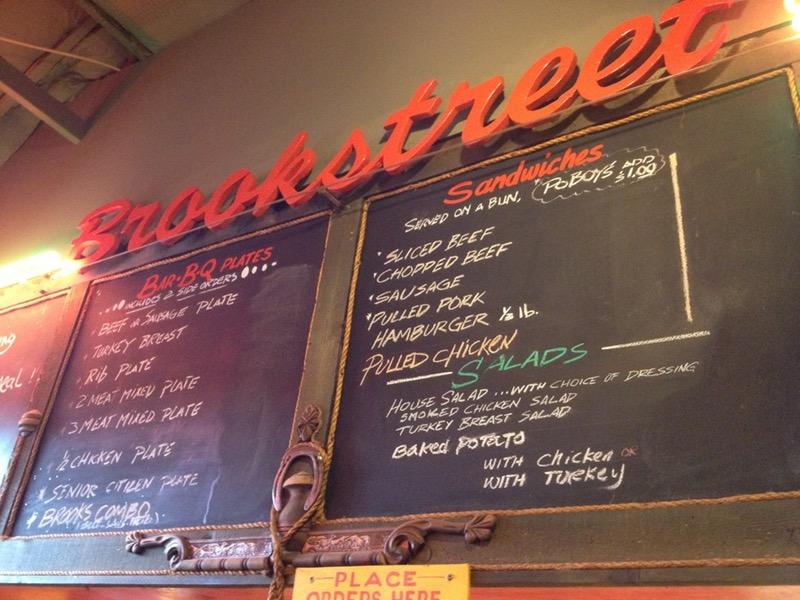 Brookstreet
BAR-B-Q PLATES
INCLUDES 2 SIDE ORDERS
BEEF or SAUSAGE PLATE
TURKEY BREAST
RIB PLATE
2 MEAT MIXED PLATE
3 MEAT MIXED PLATE
1/2 CHICKEN PLATE
SENIOR CITIZEN PLATE
BROOKS COMBO
Sandwiches
SERVED ON A BUN, "POBOY'S ADD $1.00
SLICED BEEF
CHOPPED BEEF
SAUSAGE
PULLED PORK
HAMBURGER 1/3 lb.
PULLED CHICKEN
SALADS
HOUSE SALAD ... WITH CHOICE OF DRESSING
SMOKED CHICKEN SALAD
TURKEY BREAST SALAD
Baked Potato
WITH Chicken OR
WITH Turkey
PLACE
ORDERS HERE